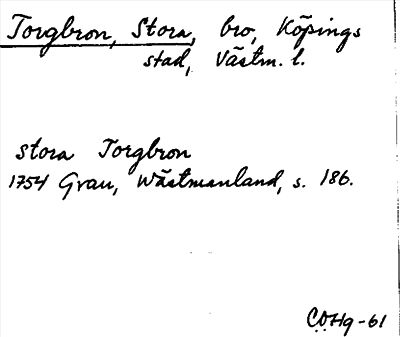 Torgbron, Stora, bro, Köpings
stad, Västm. l.
stora Torgbron
1754 Grau, Wästmanland, s. 186.
COHq-61